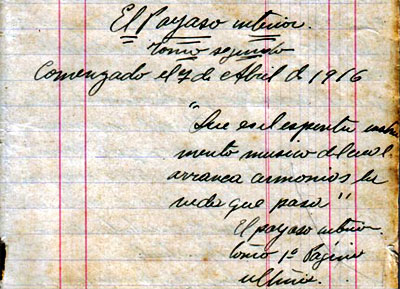 El Payaso interior.
Tomo segundo
Comenzado el 7 de Abril de 1916
"Que es el espiritu instru
mento musico del cual
arranca armonias la
vida que pasa"
El payaso interior.
Tomo 1º Página
ultima.